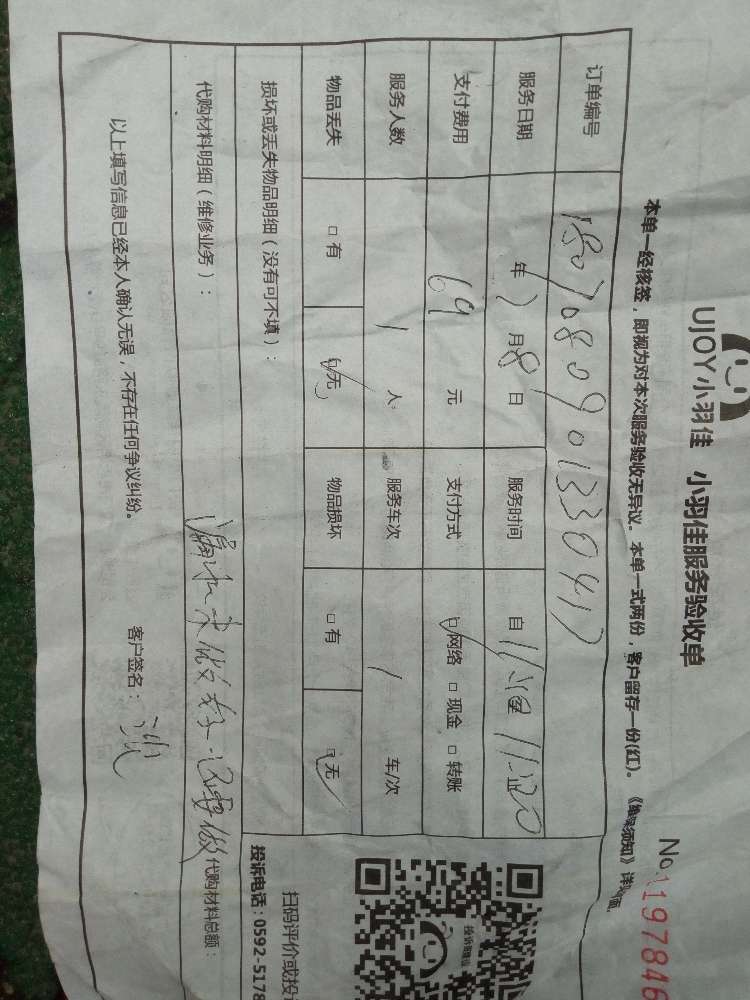 UJOY小羽佳 小羽佳服务验收单
No.1197846
本单一经核签，即视为对本次服务验收无异议。本单一式两份，客户留存一份(红)。
订单编号 180708090133047
服务日期 年 7 月 8 日 服务时间 自
支付费用 69 元 支付方式 网络 □ 现金 □ 转账
服务人数 1 人 服务车次 1 车/次
物品丢失 □ 有 无 物品损坏 □ 有 无
损坏或丢失物品明细（没有可不填）：
代购材料明细（维修业务）：
代购材料总额：
以上填写信息已经本人确认无误，不存在任何争议纠纷。 客户签名：
扫码评价或投
投诉电话：0592-5178